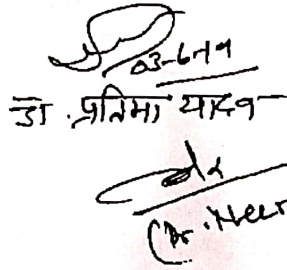 03-6-19
डा. प्रतिमा यादव
(Dr. Neer